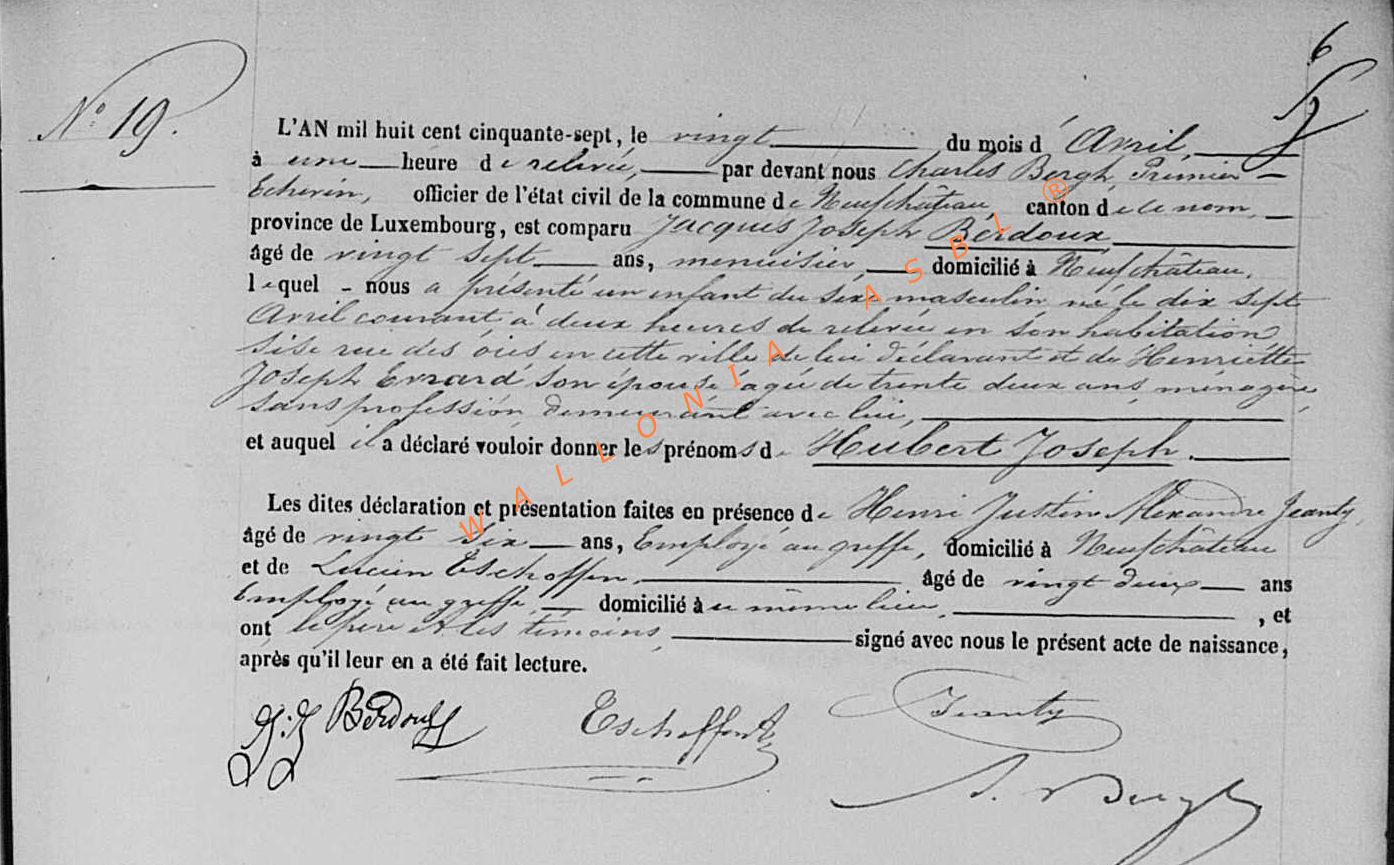 6
N° 19.
L'AN mil huit cent cinquante-sept, le vingt du mois d'Avril,
à une heure de relevée, par devant nous Charles Bergh, Premier
Echevin, officier de l'état civil de la commune de Neufchâteau, canton de ce nom,
province de Luxembourg, est comparu Jacques Joseph Berdoux,
âgé de vingt sept ans, menuisier, domicilié à Neufchâteau,
lequel nous a présenté un enfant du sexe masculin né le dix sept
Avril courant à deux heures de relevée en son habitation
sise rue des oies en cette ville de lui déclarant et de Henriette
Joseph Evrard son épouse âgée de trente deux ans, ménagère
sans profession, demeurant avec lui,
et auquel il a déclaré vouloir donner les prénoms de Hubert Joseph.
Les dites déclaration et présentation faites en présence de Henri Justin Alexandre Jeanty,
âgé de vingt six ans, Employé au greffe, domicilié à Neufchâteau
et de Lucien Eschoffen, âgé de vingt deux ans
Employé au greffe, domicilié à ce même lieu, , et
ont le père et les témoins, signé avec nous le présent acte de naissance,
après qu'il leur en a été fait lecture.
J. J. Berdoux Jeanty
Bergh
WALLONIA ASBL ®